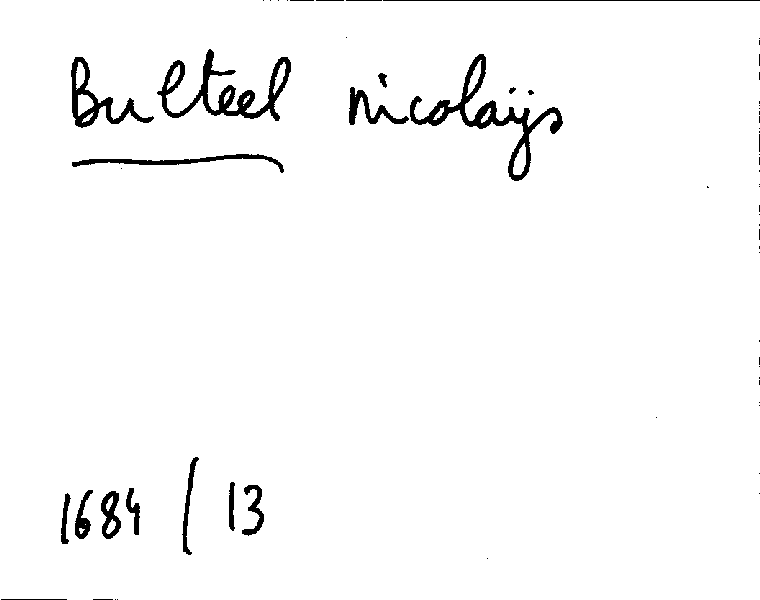 Bulteel nicolaÿs
1684 / 13